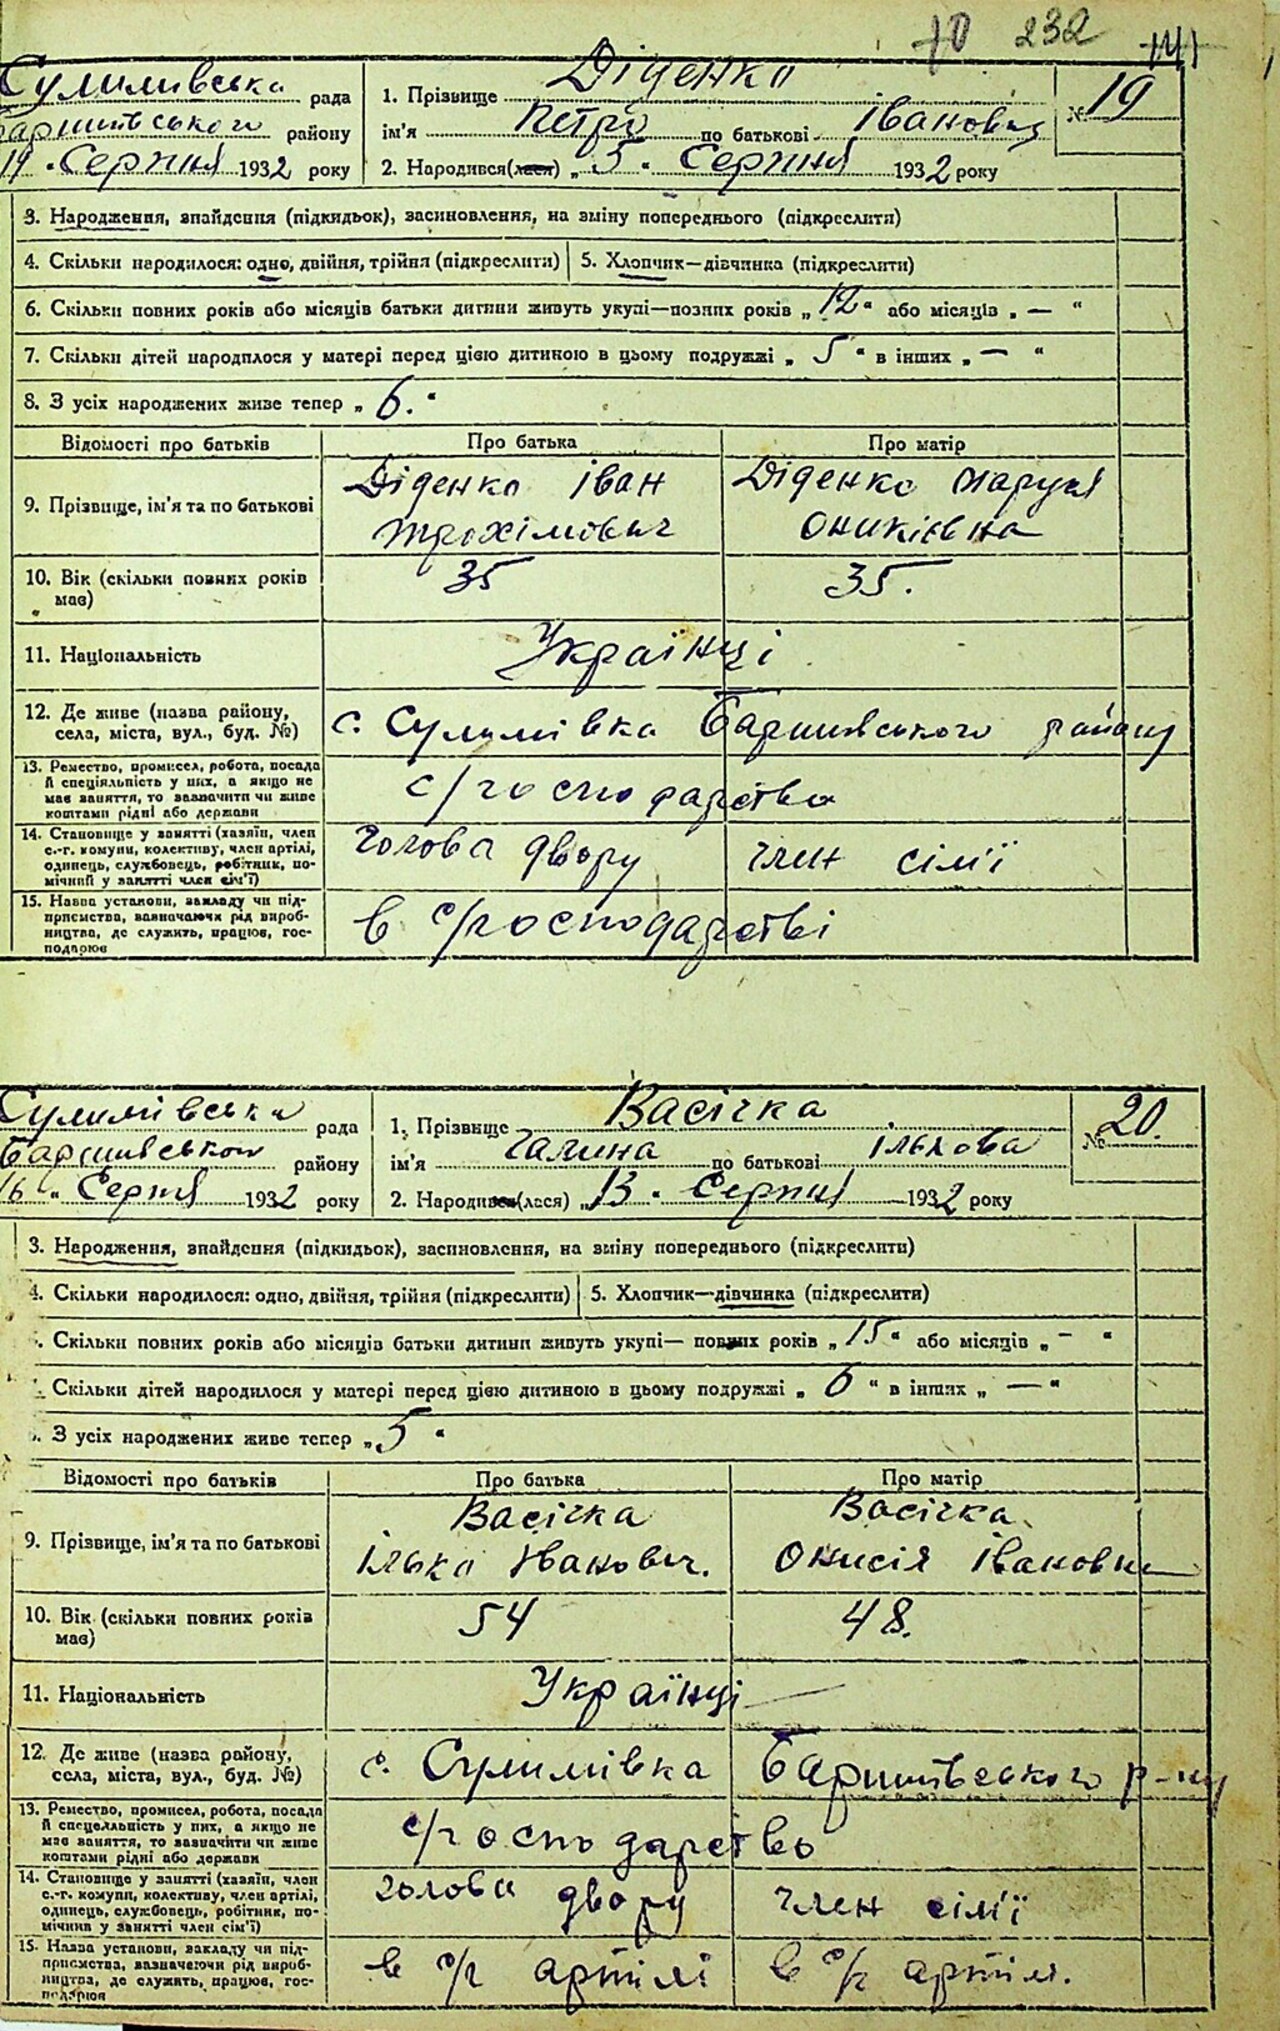 70 232 141
Сулимівська рада
Баришівського району
19 " Серпня 1932 року
1. Прізвище Діденко
ім'я Петро по батькові Іванович
2. Народився(лася) „ 5 " Серпня 1932 року
№ 19
3. Народження, знайдення (підкидьок), засиновлення, на зміну попереднього (підкреслити)
4. Скільки народилося: одно, двійня, трійня (підкреслити) 5. Хлопчик—дівчинка (підкреслити)
6. Скільки повних років або місяців батьки дитини живуть укупі—повних років „ 12 " або місяців „ — "
7. Скільки дітей народилося у матері перед цією дитиною в цьому подружжі „ 5 " в інших „ — "
8. З усіх народжених живе тепер „ 6. "
Відомості про батьків Про батька Про матір
9. Прізвище, ім'я та по батькові
Діденко Іван
Трохімович
Діденко Маруся
Оникіївна
10. Вік (скільки повних років
має)
35 35.
11. Національність Українці
12. Де живе (назва району,
села, міста, вул., буд. №)
с. Сулимівка Баришівського району
13. Ремество, промисел, робота, посада
й спеціяльність у них, а якщо не
має заняття, то зазначити чи живе
коштами рідні або держави
с/господарство
14. Становище у занятті (хазяїн, член
с.-г. комуни, колективу, член артілі,
одинець, службовець, робітник, по-
мічний у занятті член сім'ї)
голова двору член сім'ї
15. Назва установи, закладу чи під-
приємства, зазначаючи рід вироб-
ництва, де служить, працює, гос-
подарює
в с/господарстві
Сулимівська рада
Баришівського району
16 " Серпня 1932 року
1. Прізвище Васічка
ім'я Галина по батькові Ількова
2. Народився(лася) „ 13 " Серпня 1932 року
№ 20.
3. Народження, знайдення (підкидьок), засиновлення, на зміну попереднього (підкреслити)
4. Скільки народилося: одно, двійня, трійня (підкреслити) 5. Хлопчик—дівчинка (підкреслити)
. Скільки повних років або місяців батьки дитини живуть укупі— повних років „ 15 " або місяців „ – "
. Скільки дітей народилося у матері перед цією дитиною в цьому подружжі „ 6 " в інших „ — "
. З усіх народжених живе тепер „ 5 "
Відомості про батьків Про батька Про матір
9. Прізвище, ім'я та по батькові
Васічка
Ілько Іванович.
Васічка
Онисія Івановна
10. Вік (скільки повних років
має)
54 48.
11. Національність Українці
12. Де живе (назва району,
села, міста, вул., буд. №)
с. Сулимівка Баришівського р-ну
13. Ремество, промисел, робота, посада
й спецеяльність у них, а якщо не
має заняття, то зазначити чи живе
коштами рідні або держави
с/господарство
14. Становище у занятті (хазяїн, член
с.-г. комуни, колективу, член артілі,
одинець, службовець, робітник, по-
мічний у занятті член сім'ї)
голова двору член сім'ї
15. Назва установи, закладу чи під-
приємства, зазначаючи рід вироб-
ництва, де служить, працює, гос-
подарює
в с/г артілі в с/г артілі.